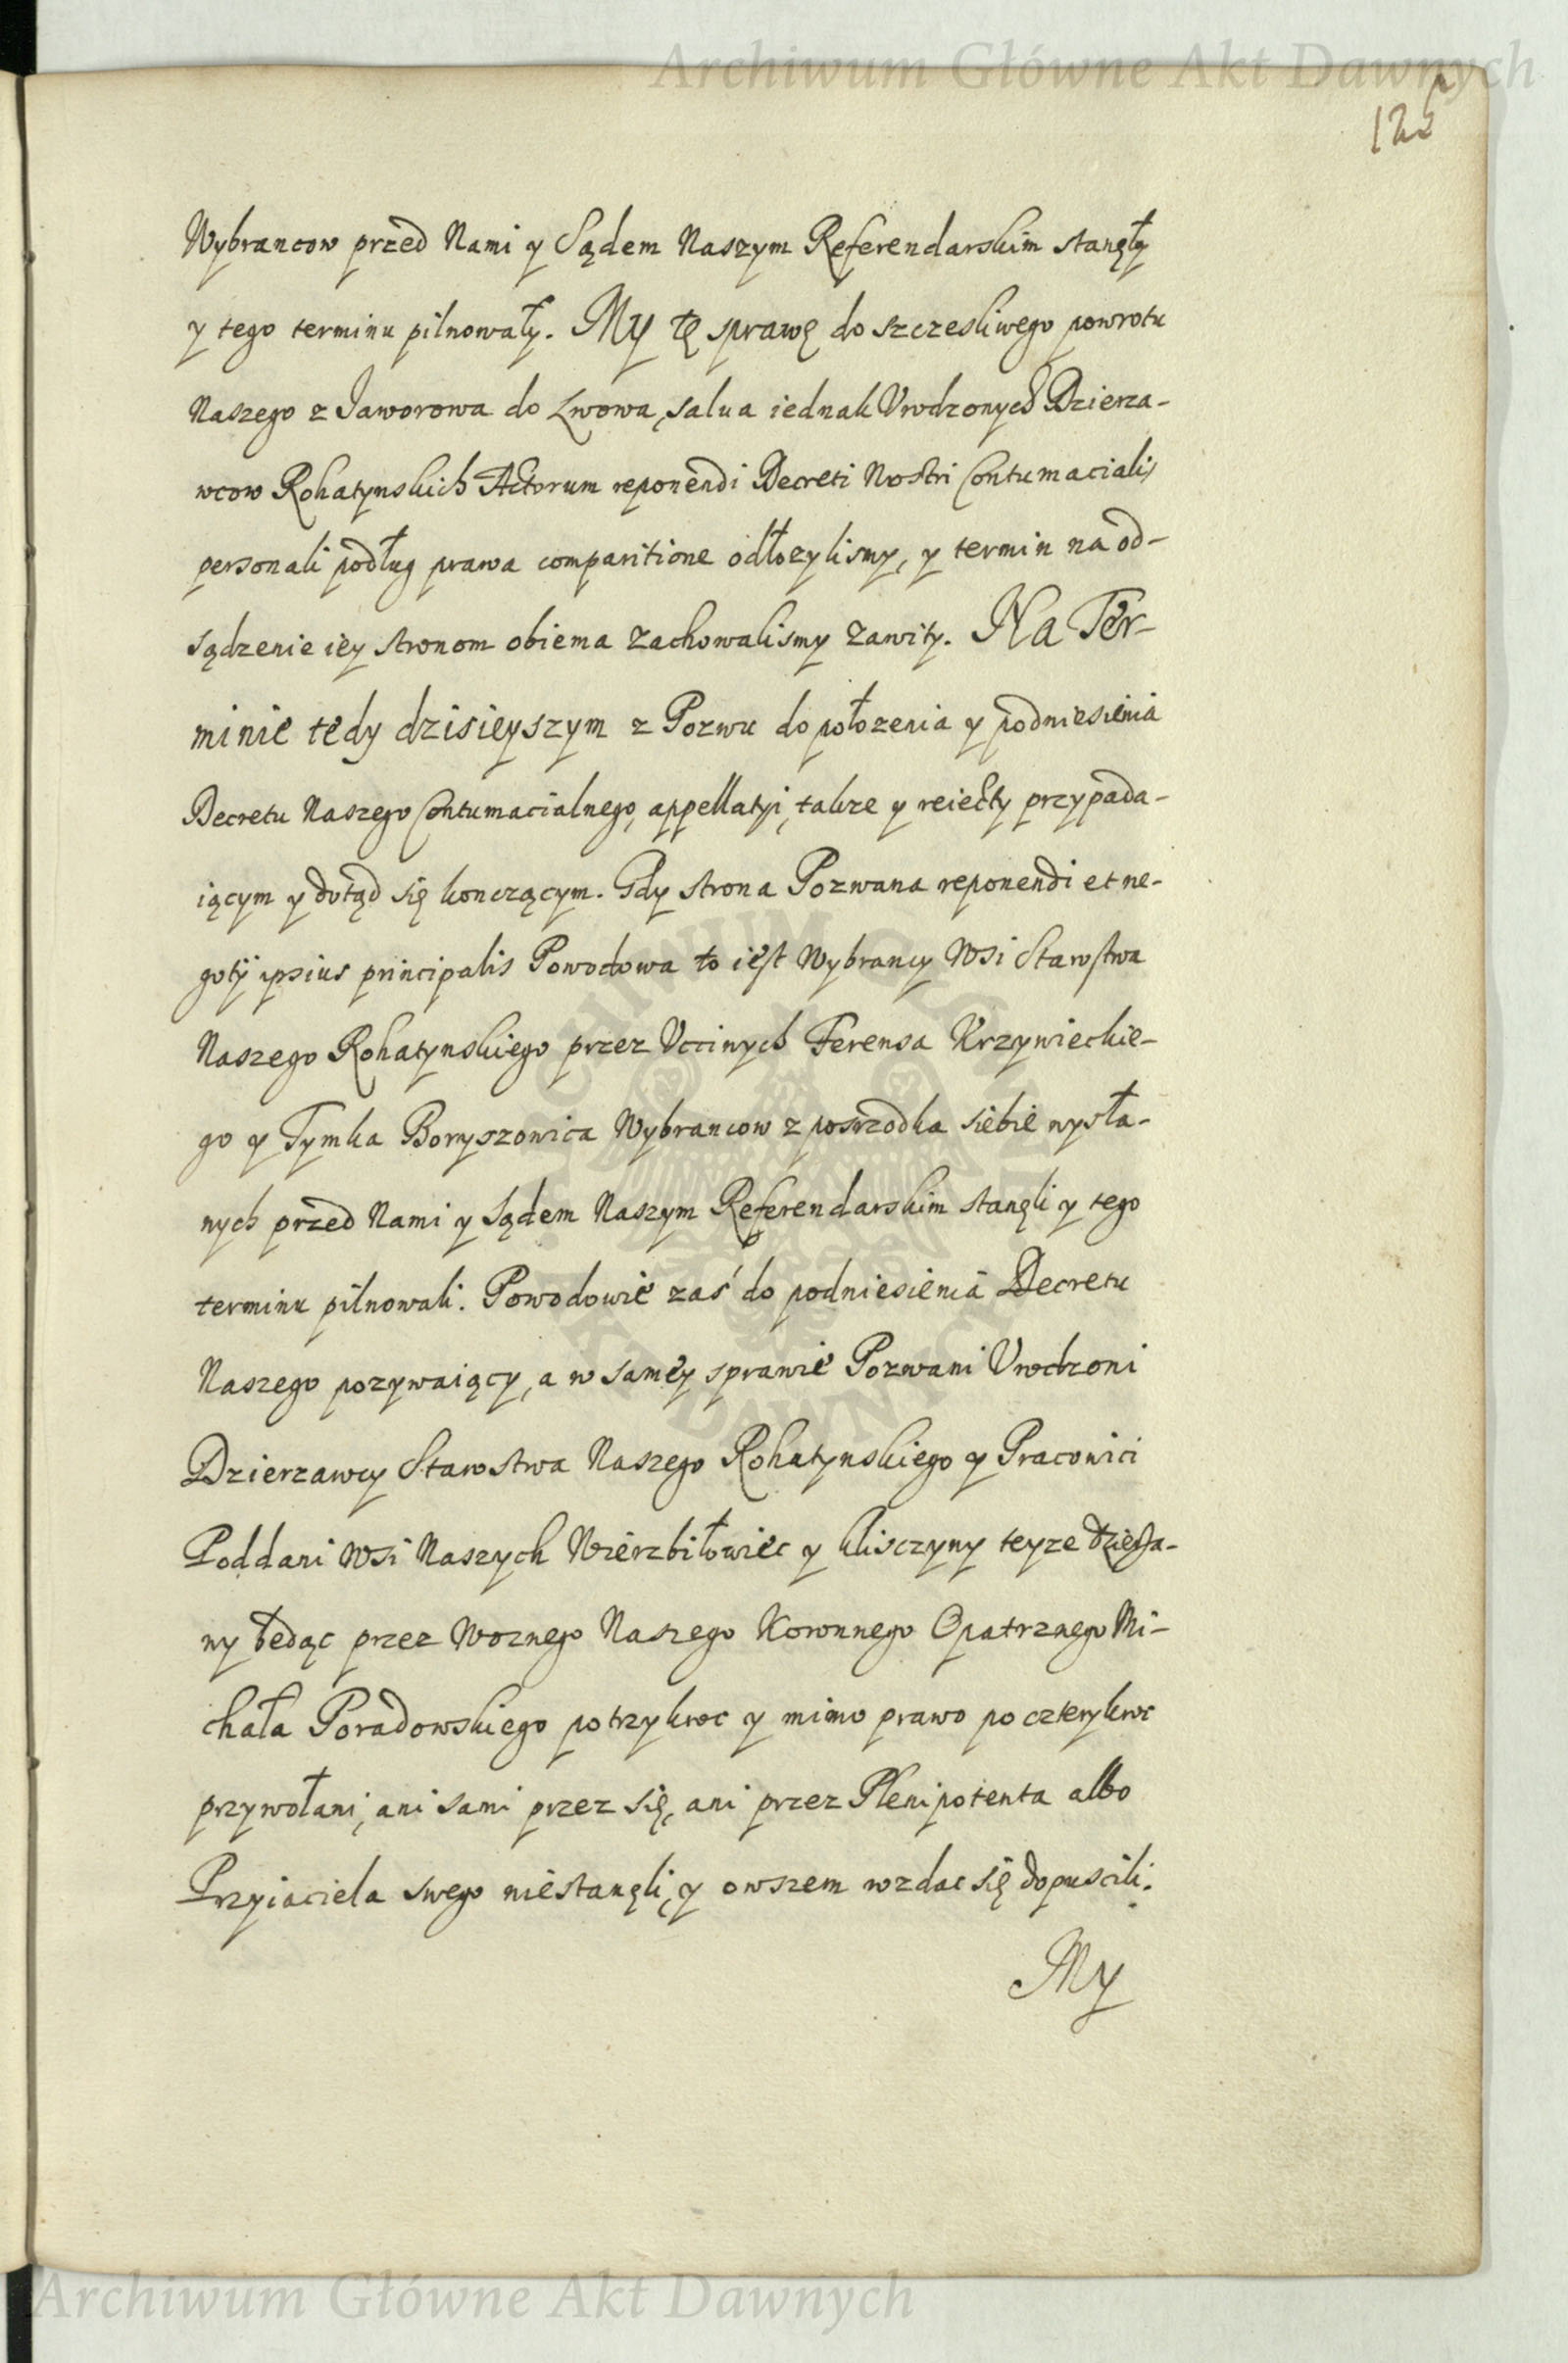 Archiwum Główne Akt Dawnych
122
Wybrancow przed Nami y Sądem Naszym Referendarskim stanęły
y tego terminu pilnowały. My tę sprawę do szczesliwego powrotu
Naszego z Jaworowa do Lwowa, salua iednak Vrodzonych Dzierza-
wcow Rohatynskich Actorum reponendi Decreti Nostri Contumacialis
personali podług prawa comparitione odłozylismy, y termin na od-
sądzenie iey stronom obiema zachowalismy zawity. Na Ter-
minie tedy dzisieyszym z Pozwu do połozenia y podniesienia
Decretu Naszego Contumacialnego, appellatyi, takze y reiekty przypada-
iącym y dotąd się konczącym. Gdy strona Pozwana reponendi et ne-
gotij ipsius principalis Powodowa to iest Wybrancy Wsi Starostwa
Naszego Rohatynskiego przez Vccinych Ferensa Krzywieckie-
go y Tymka Boryszowica Wybrancow z posrzodka siebie wysła-
nych przed Nami y Sądem Naszym Referendarskim stanęli y tego
terminu pilnowali. Powodowie zaś do podniesienia Decretu
Naszego pozywaiący, a w samey sprawie Pozwani Vrodzoni
Dzierzawcy Starostwa Naszego Rohatynskiego y Pracowici
Poddani Wsi Naszych Wierzbiłowiec y Klisczyny teyze dzierza-
wy będąc przez Woznego Naszego Koronnego Opatrznego Mi-
chała Poradowskiego potrzykroc y mimo prawo po czterykroc
przywołani, ani sami przez się, ani przez Plenipotenta albo
Przyiaciela swego niestanęli, y owszem wzdac się dopuscili.
My
ARCHIWUM GŁÓWNE AKT DAWNYCH
Archiwum Główne Akt Dawnych